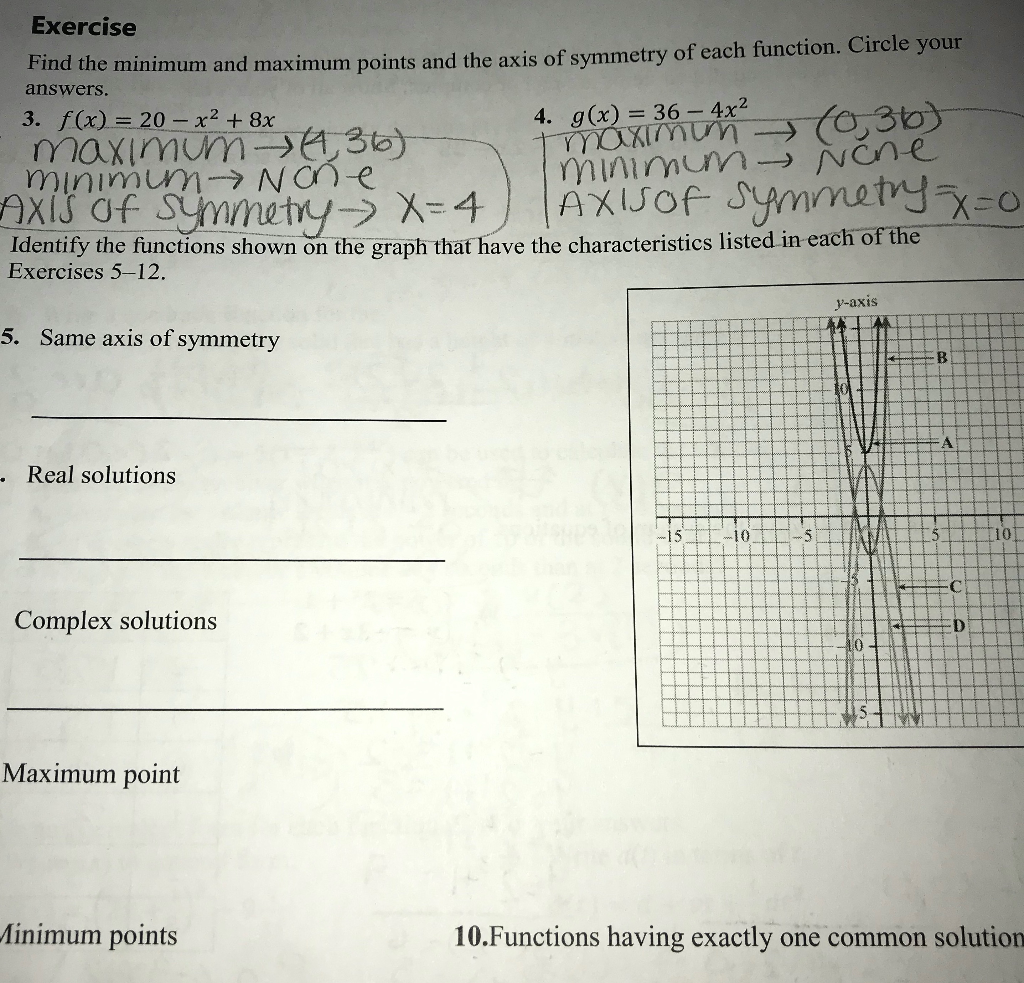 Exercise
Find the minimum and maximum points and the axis of symmetry of each function. Circle your
answers.
3. f(x) = 20 − x² + 8x
maximum → (4, 36)
minimum → None
AXIS of symmetry → x = 4
4. g(x) = 36 − 4x²
maximum → (0, 36)
minimum → None
AXIS of symmetry = x = 0
Identify the functions shown on the graph that have the characteristics listed in each of the
Exercises 5–12.
y-axis
B
10
A
5
−15 −10 −5 5 10
C
D
−10
5
5. Same axis of symmetry
. Real solutions
Complex solutions
Maximum point
Minimum points
10.Functions having exactly one common solution